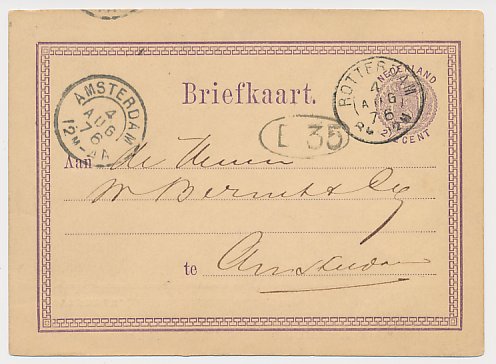 NEDERLAND
CENT
ROTTERDAM
4
AUG
76
AMSTERDAM
4
AUG
76
12M-4A
Briefkaart.
E 35
Aan de Heeren
te Amsterdam